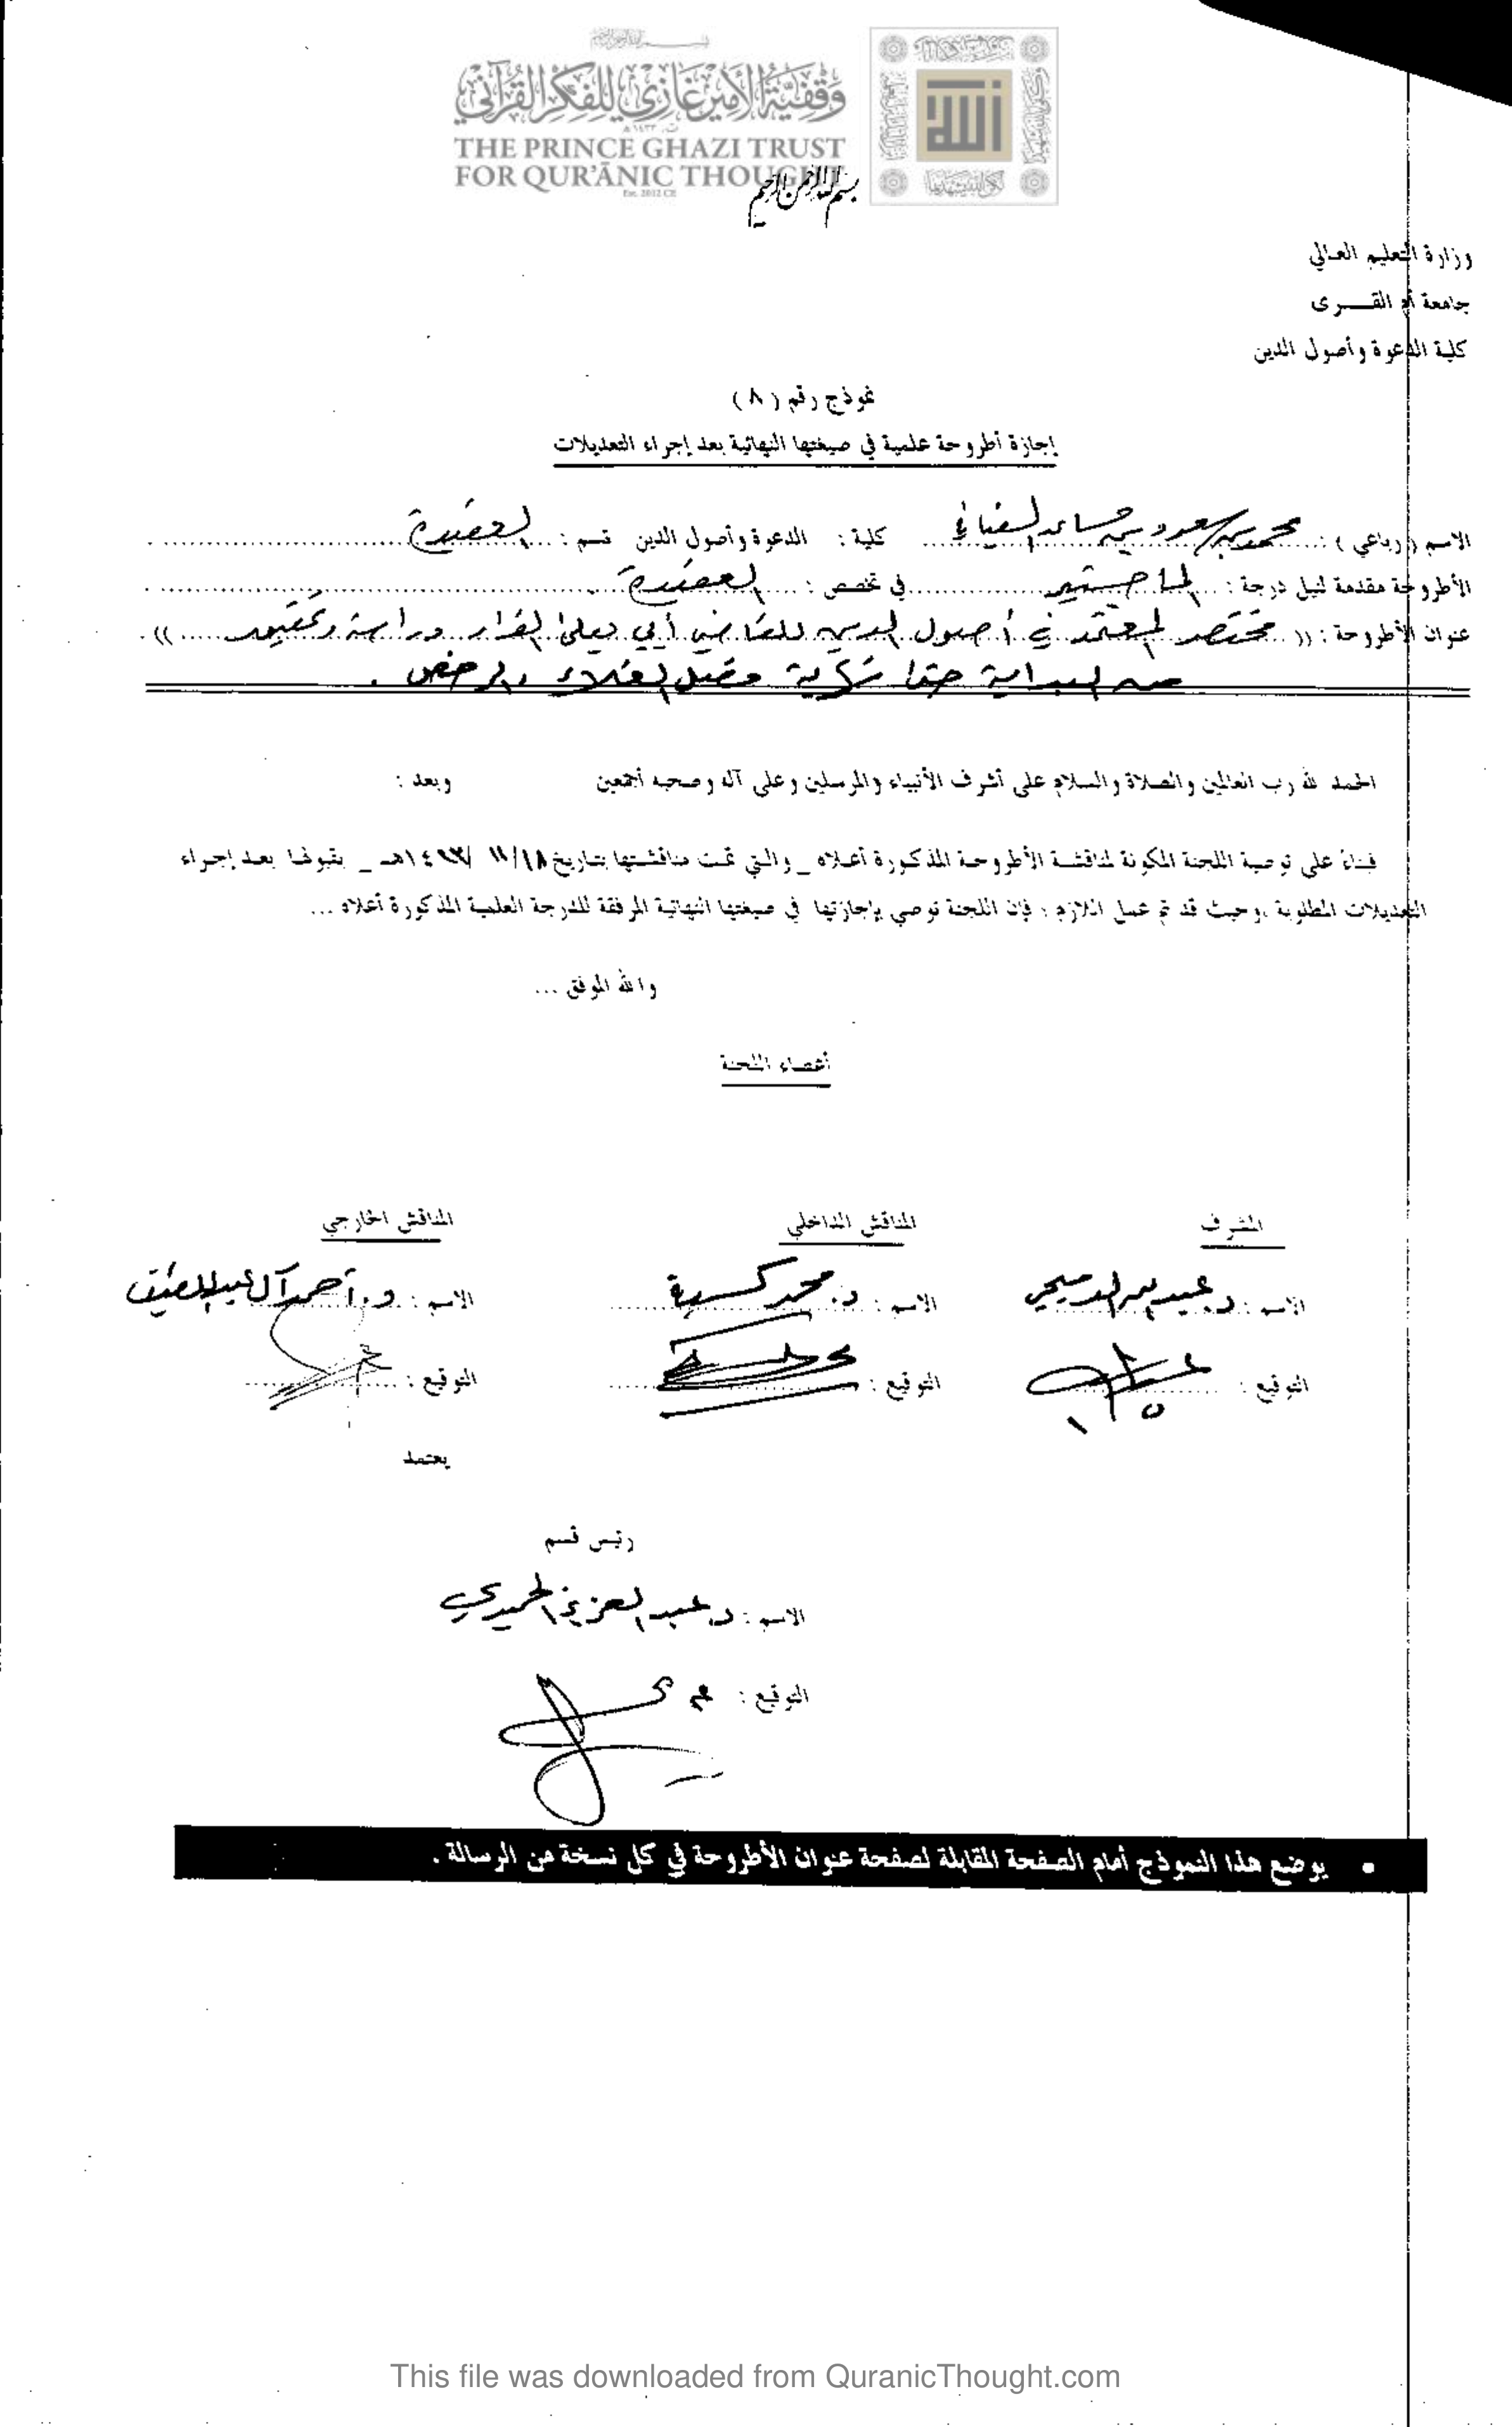 وقفية الأمير غازي للفكر القرآني
THE PRINCE GHAZI TRUST
FOR QUR'ĀNIC THOUGHT
Est. 2012 CE
بسم الله الرحمن الرحيم
وزارة التعليم العالي
جامعة أم القـــرى
كلية الدعوة وأصول الدين
نموذج رقم ( ٨ )
إجازة أطروحة علمية في صيغتها النهائية بعد إجراء التعديلات
الاسم ( رباعي ) : محمد بن سعود بن مساعد السفياني كلية : الدعوة وأصول الدين قسم : العقيدة
الأطروحة مقدمة لنيل درجة : الماجستير في تخصص : العقيدة
عنوان الأطروحة : (( مختصر المعتمد في أصول الدين للقاضي أبي يعلى الفراء دراسة وتحقيق ))
من البداية حتى نهاية فصل الغلاء والرخص .
الحمد لله رب العالمين والصلاة والسلام على أشرف الأنبياء والمرسلين وعلى آله وصحبه أجمعين وبعد :
فبناءً على توصية اللجنة المكونة لمناقشة الأطروحة المذكورة أعلاه _ والتي تمت مناقشتها بتاريخ ١٨/١١/ هـ _ بقبولها بعد إجراء
التعديلات المطلوبة ، وحيث قد تم عمل اللازم ؛ فإن اللجنة توصي بإجازتها في صيغتها النهائية المرفقة للدرجة العلمية المذكورة أعلاه ...
والله الموفق ...
أعضاء اللجنة
المشرف المناقش الداخلي المناقش الخارجي
الاسم : د. عبدالله الدميجي الاسم : د. محمد كسبة الاسم : د. أحمد آل عبداللطيف
التوقيع : التوقيع : التوقيع :
يعتمد
رئيس قسم
الاسم : د. عبدالعزيز الحميدي
التوقيع :
• يوضع هذا النموذج أمام الصفحة المقابلة لصفحة عنوان الأطروحة في كل نسخة من الرسالة .
This file was downloaded from QuranicThought.com